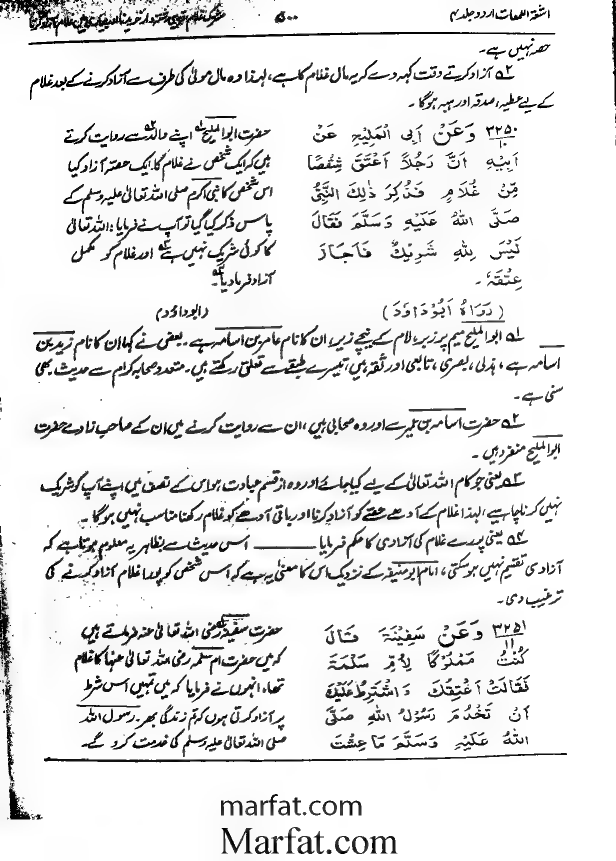 اشعۃ اللمعات اردو جلد ۴
۵۰۰
حصہ نہیں ہے۔
۵۲ آزاد کرتے وقت کہہ دے کہ یہ مال غلام کا ہے، لہذا وہ مال مولیٰ کی طرف سے آزاد کرنے کے بعد غلام
کے لیے عطیہ، صدقہ اور ہبہ ہوگا۔
۳۲۵۰ وَعَنْ اَبِی الْمَلِیْحِ عَنْ
۱۰
اَبِیْهِ اَنَّ رَجُلًا اَعْتَقَ شِقْصًا
مِّنْ غُلَامٍ فَذُکِرَ ذٰلِكَ النَّبِیُّ
صَلَّی اللهُ عَلَیْهِ وَسَلَّمَ فَقَالَ
لَیْسَ لِلّٰهِ شَرِیْكٌ فَاَجَازَ
عِتْقَهٗ۔
(رَوَاهُ اَبُوْدَاوٗدَ)
حضرت ابو الملیح اپنے والد سے روایت کرتے
ہیں کہ ایک شخص نے غلام کا ایک حصہ آزاد کیا
اس شخص کا نبی اکرم صلی اللہ تعالیٰ علیہ وسلم کے
پاس ذکر کیا گیا تو آپ نے فرمایا: اللہ تعالیٰ
کا کوئی شریک نہیں ہے اور غلام کو مکمل
آزاد فرما دیا۔
(ابوداؤد)
۵۱ ابو الملیح میم پر زبر، لام کے نیچے زیر، ان کا نام عامر بن اسامہ ہے۔ بعض نے کہا ان کا نام زید بن
اسامہ ہے، ہذلی، بصری، تابعی اور ثقہ ہیں، تیسرے طبقے سے تعلق رکھتے ہیں۔ متعدد صحابہ کرام سے حدیث بھی
سنی ہے۔
۵۲ حضرت اسامہ بن عمیر ہے اور وہ صحابی ہیں، ان سے روایت کرنے میں ان کے صاحب زادے حضرت
ابو الملیح منفرد ہیں۔
۵۳ یعنی جو کام اللہ تعالیٰ کے لیے کیا جائے اور وہ از قسم عبادت ہو اس کے تعلق میں اپنے آپ کو شریک
نہیں کرنا چاہیے، لہذا غلام کے آدھے حصے کو آزاد کرنا اور باقی آدھے کو غلام رکھنا مناسب نہیں ہوگا۔
۵۴ یعنی پورے غلام کی آزادی کا حکم فرمایا ـــــــ اس حدیث سے بظاہر یہ معلوم ہوتا ہے کہ
آزادی تقسیم نہیں ہو سکتی، امام ابوحنیفہ کے نزدیک اس کا معنیٰ یہ ہے کہ اس شخص کو پورا غلام آزاد کرنے کی
ترغیب دی۔
۳۲۵۱ وَعَنْ سَفِیْنَةَ قَالَ
۱۱
کُنْتُ مَمْلُوْکًا لِاُمِّ سَلَمَةَ
فَقَالَتْ اُعْتِقُكَ وَاَشْتَرِطُ عَلَیْكَ
اَنْ تَخْدُمَ رَسُوْلَ اللهِ صَلَّی
اللهُ عَلَیْهِ وَسَلَّمَ مَا عِشْتَ
حضرت سفینہ رضی اللہ تعالیٰ عنہ فرماتے ہیں
کہ میں حضرت ام سلمہ رضی اللہ تعالیٰ عنہا کا غلام
تھا، انہوں نے فرمایا کہ میں تمہیں اس شرط
پر آزاد کرتی ہوں کہ تم زندگی بھر۔ رسول اللہ
صلی اللہ تعالیٰ علیہ وسلم کی خدمت کرو گے۔
marfat.com
Marfat.com